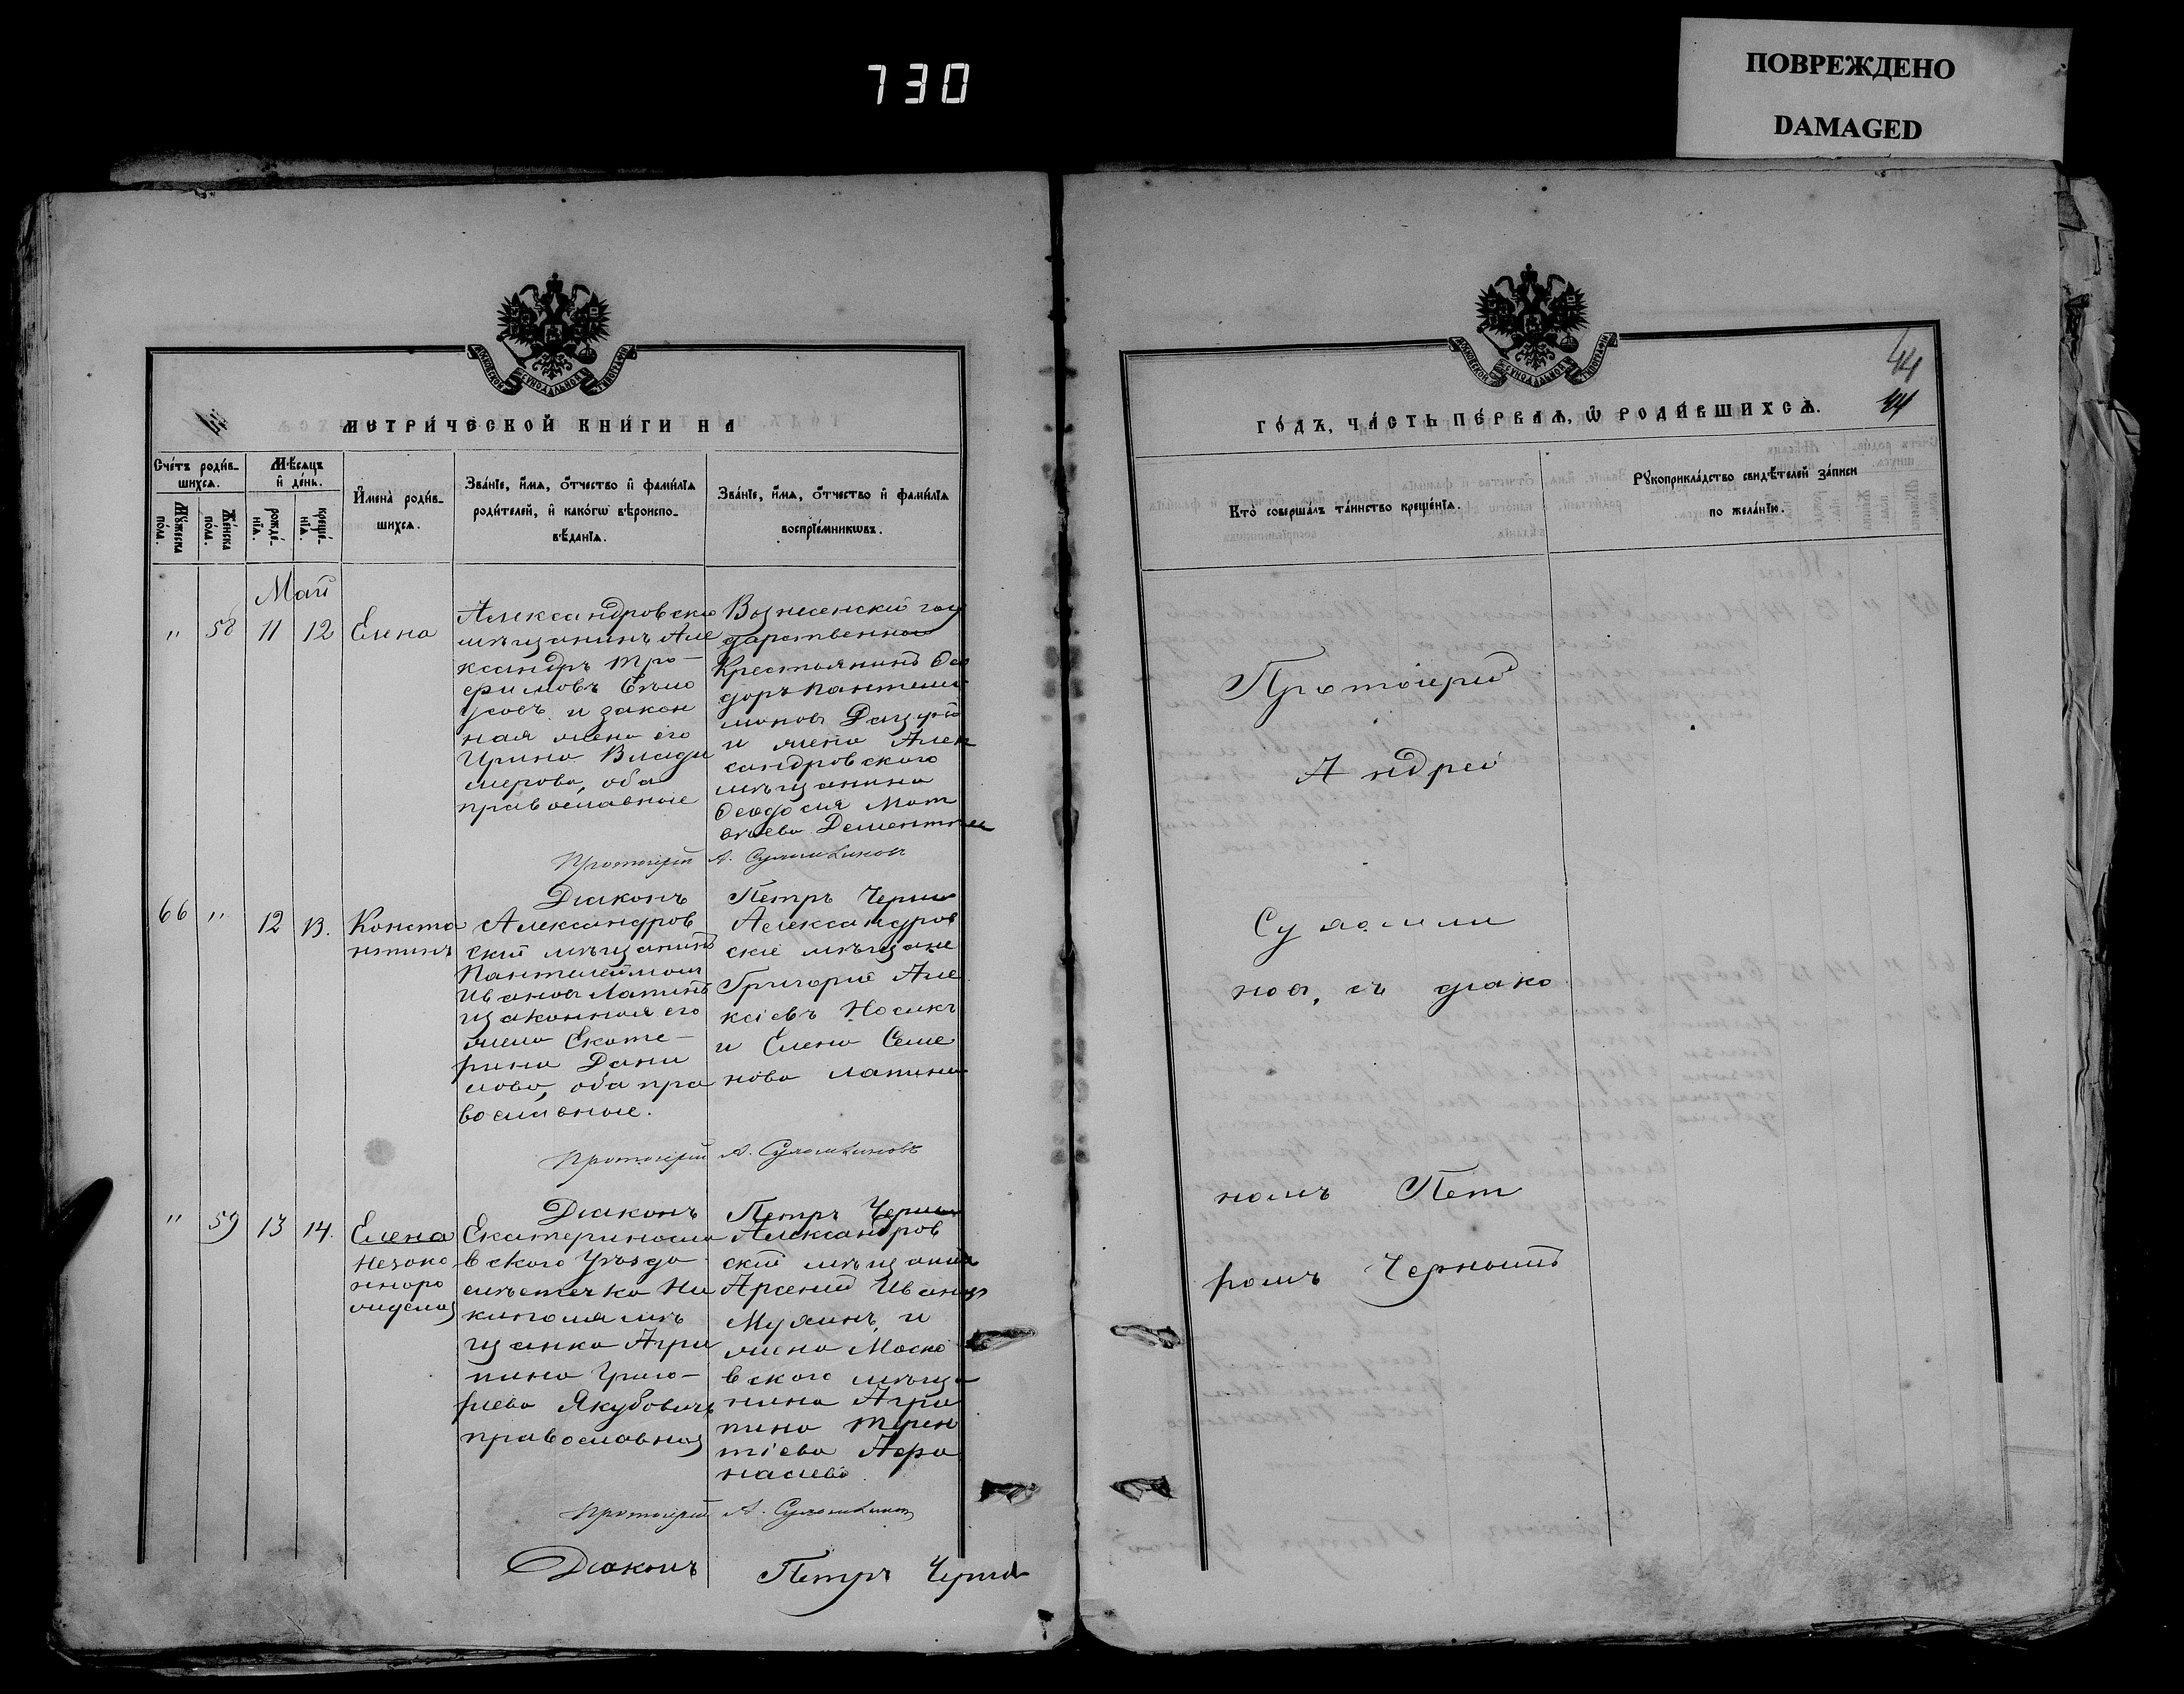 730
ПОВРЕЖДЕНО
DAMAGED
МОСКОВСКОЙ СѴНОДАЛЬНОЙ ТИПОГРАФІИ
МЕТРИ́ЧЕСКОЙ КНИ́ГИ НА
Сче́тъ роди́в-
шихсѧ.
Мѣ́сѧцъ
и҆ де́нь.
Мꙋ́жеска
по́ла.
Же́нска
по́ла.
рожде́-
нїѧ.
креще́-
нїѧ.
И҆мена̀ роди́в-
шихсѧ.
Зва́нїе, и҆́мѧ, ѻ҆́тчество и҆ фами́лїѧ
роди́телей, и҆ како́гѡ вѣ̀роиспо-
вѣ́данїѧ.
Зва́нїе, и҆́мѧ, ѻ҆́тчество и҆ фами́лїѧ
воспрїе́мникѡвъ.
Май
" 58 11 12 Елена
Александровскій
мѣщанинъ Але
ксандръ Тро-
фимовъ Бѣло
усовъ и закон
ная жена его
Ирина Влади
мерова, оба
православные
Вознесенскій госу
дарственной
Крестьянинъ Ѳео
доръ Пантелей
моновъ
и жена Алек
сандровского
мѣщанина
Ѳеодосия Мат
ѳѣева
Протоіерей А. Сужалминовъ
Діаконъ Петръ Черны
66 " 12 13. Конста
нтинъ
Александров
скій мѣщанинъ
Пантелеймонъ
Ивановъ Лапинъ
изаконная его
жена Екате-
рина Дани
лова, оба пра
вославные.
Александров
скіе мѣщане
Григорій Але
ксіевъ Носикъ
и Елена Семе
нова Лапина
Протоіерей А. Сужалминовъ
Діаконъ Петръ Черны
" 59 13 14. Елена
незако
нноро
жденная
Екатериносла
вского Уѣзда
мѣстечка Ни
кополя мѣ
щанка Агри
пина Григо-
риева Якубовичъ
православная
Александров
скій мѣщанинъ
Арсеній Ивановъ
Мухинъ, и
жена Моско
вского мѣща
нина Агри
пина Терен
тіева Афа
насиева.
Протоіерей А. Сужалминовъ
Діаконъ Петръ Черны
ГО́ДЪ, ЧА́СТЬ ПЕ́РВАѦ, Ѡ҆ РОДИ́ВШИХСѦ.
44
44
МОСКОВСКОЙ СѴНОДАЛЬНОЙ ТИПОГРАФІИ
Кто̀ соверша́лъ та́инство креще́нїѧ.
Рꙋкоприкла́дство свидѣ́телей за́писи
по жела́нїю.
Протоіерей
Андрей
Сужалми
новъ, съ діако
номъ Пет
ромъ Чернымъ